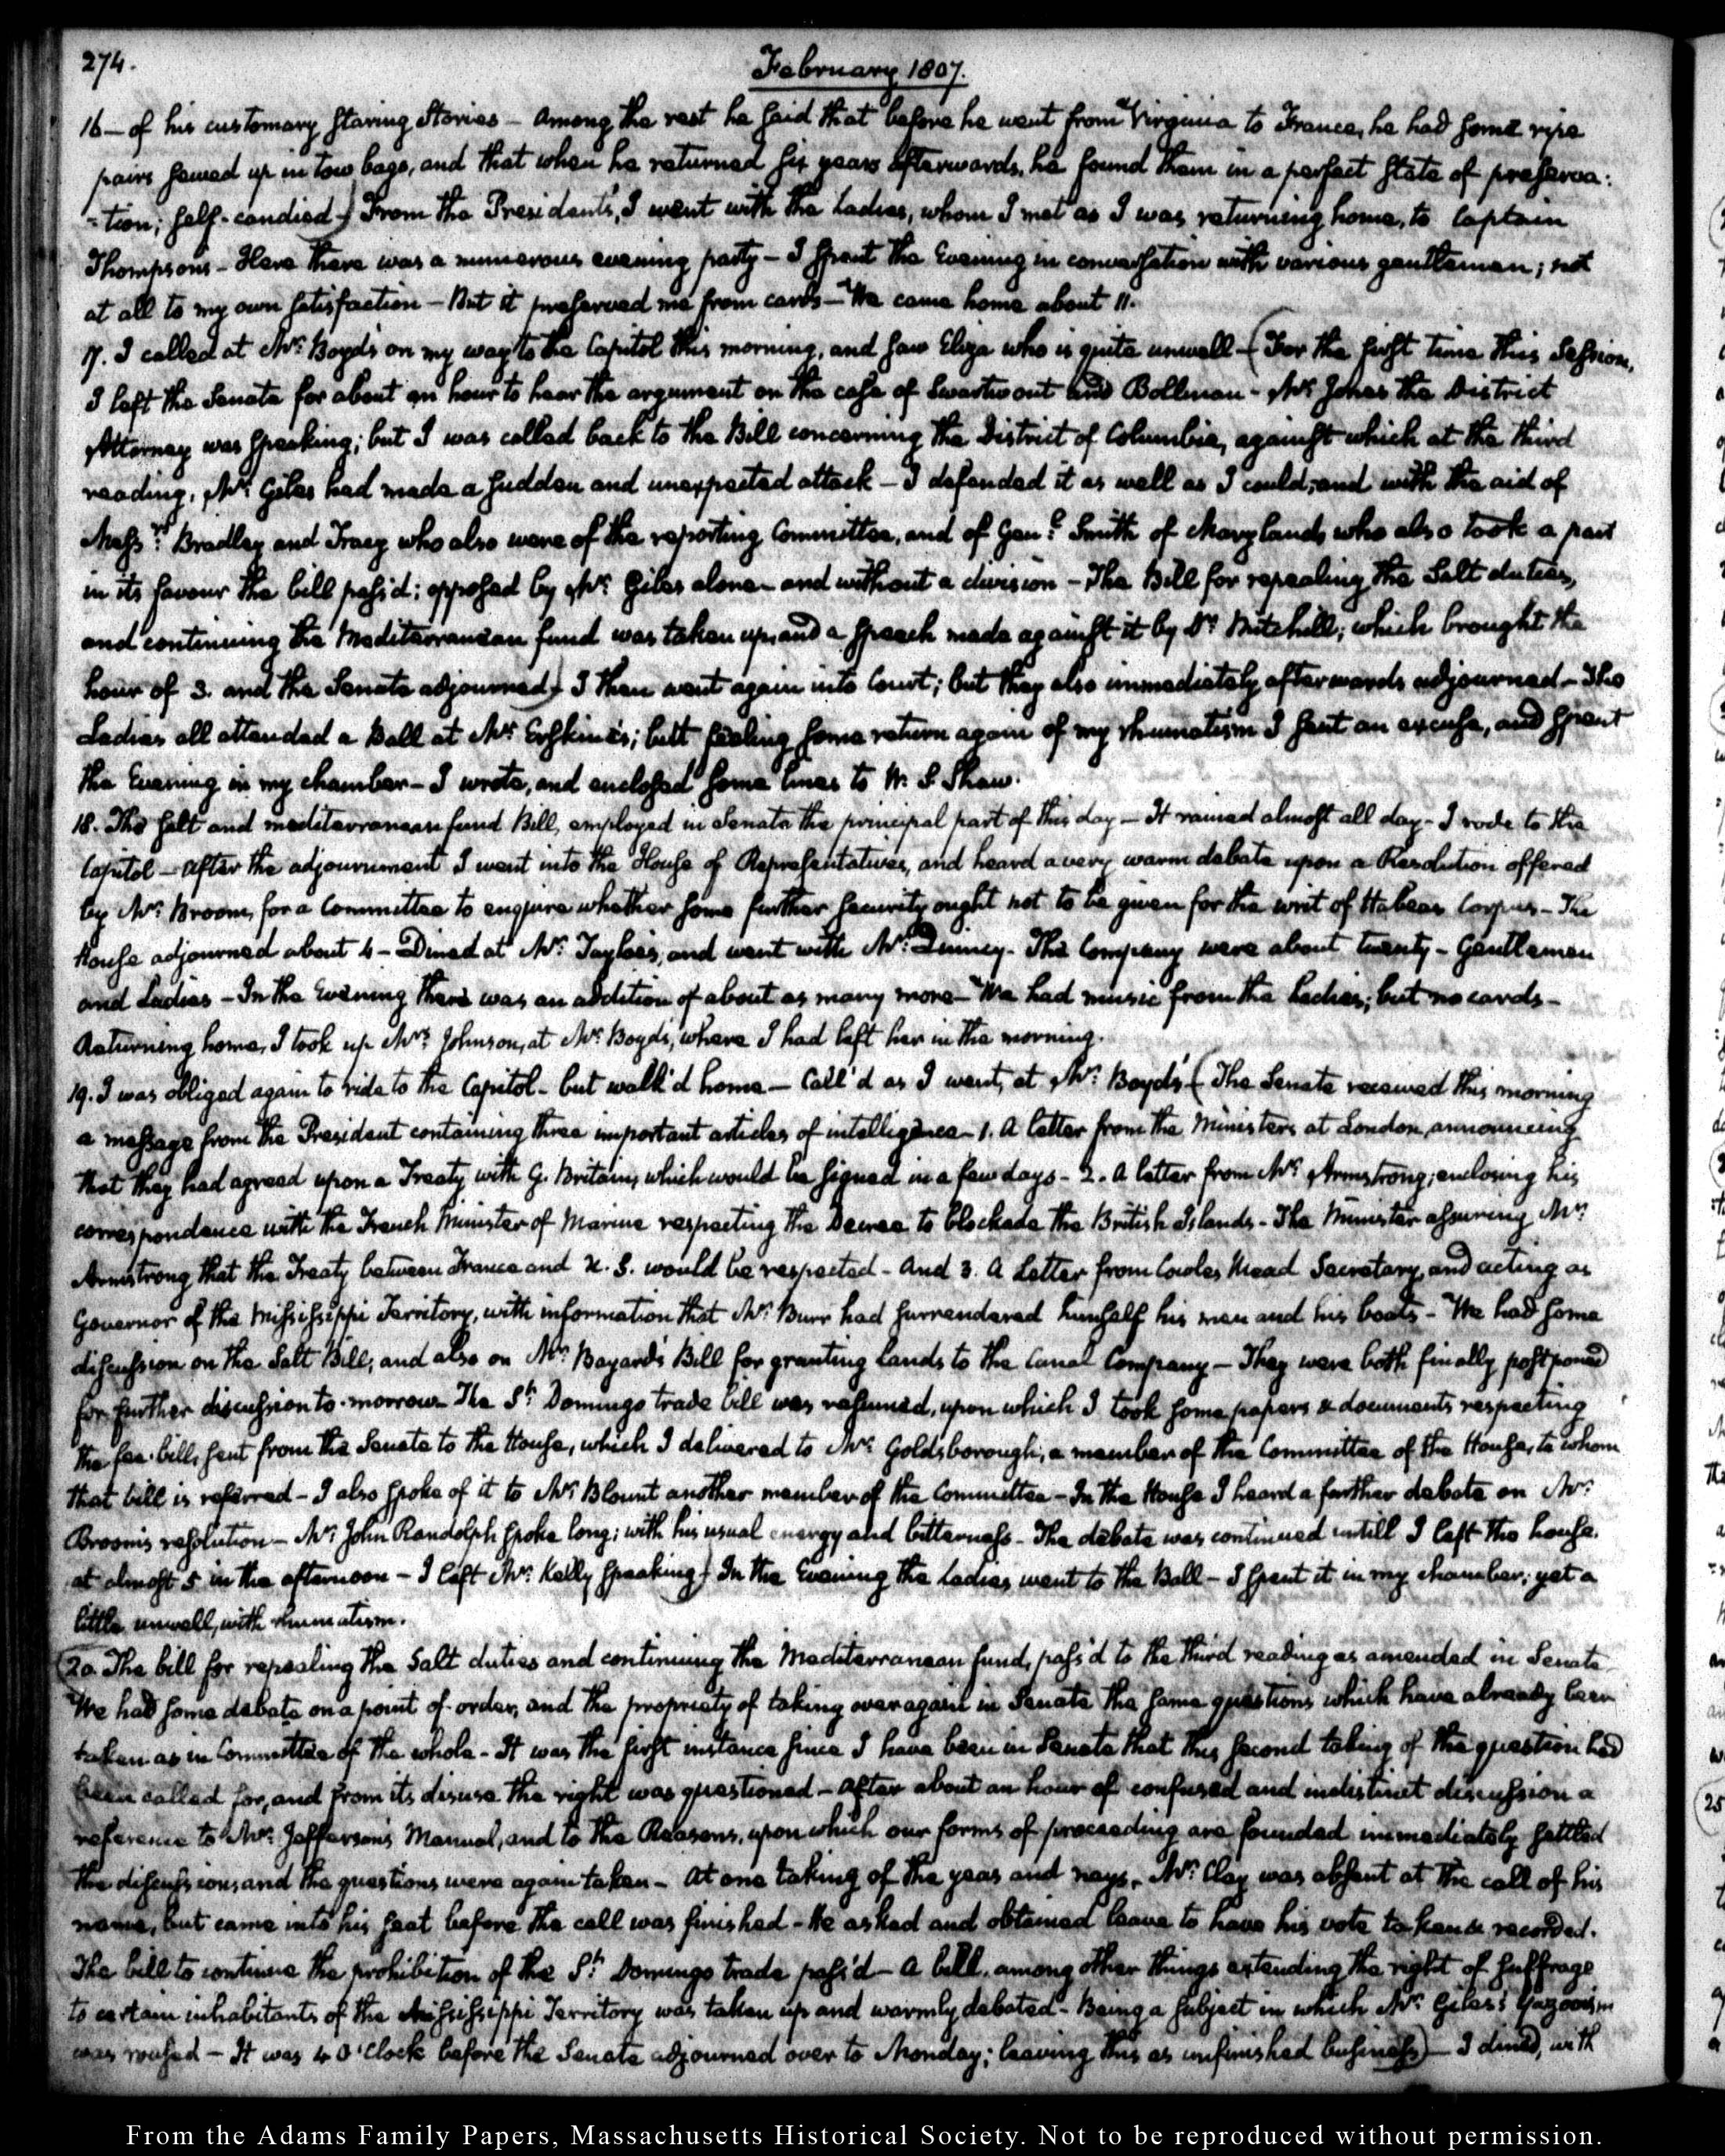 274.
February 1807.
16 — of his customary staring Stories — Among the rest he said that before he went from Virginia to France, he had some ripe
pairs sewed up in tow bags, and that when he returned six years afterwards, he found them in a perfect state of preserva:
-tion; self-candied —) From the Presidents, I went with the Ladies, whom I met as I was returning home, to Captain
Thompsons — Here there was a numerous evening party — I spent the Evening in conversation with various gentlemen; not
at all to my own satisfaction — But it preserved me from cards — We came home about 11.
17. I called at Mr. Boyd's on my way to the Capitol this morning, and saw Eliza who is quite unwell — (For the first time this Session,
I left the Senate for about an hour to hear the argument on the case of Swartwout and Bollman — Mr. Jones the District
Attorney was speaking; but I was called back to the Bill concerning the District of Columbia, against which at the third
reading, Mr. Giles had made a sudden and unexpected attack — I defended it as well as I could; and with the aid of
Messrs. Bradley and Tracy who also were of the reporting Committee, and of Genl. Smith of Maryland, who also took a part
in its favour the bill pass'd; opposed by Mr. Giles alone — and without a division — The Bill for repealing the Salt duties,
and continuing the Mediterranean fund was taken up, and a speech made against it by Dr. Mitchill; which brought the
hour of 3. and the Senate adjourned) I then went again into Court; but they also immediately afterwards adjourned — The
Ladies all attended a Ball at Mr. Erskine's; but feeling some return again of my rhumatism I sent an excuse, and spent
the Evening in my chamber — I wrote, and enclosed some lines to W. S. Shaw.
18. The salt and mediterranean fund Bill, employed in Senate the principal part of this day — It rained almost all day — I rode to the
Capitol — After the adjournment I went into the House of Representatives, and heard a very warm debate upon a Resolution offered
by Mr. Broom, for a Committee to enquire whether some further security ought not to be given for the writ of Habeas Corpus — The
House adjourned about 4 — Dined at Mr. Tayloe's, and went with Mr. Quincy. The Company were about twenty — Gentlemen
and Ladies — In the Evening there was an addition of about as many more — We had music from the Ladies; but no cards —
Returning home, I took up Mrs. Johnson, at Mr. Boyd's, where I had left her in the morning.
19. I was obliged again to ride to the Capitol — but walk'd home — Call'd as I went, at Mr. Boyd's (The Senate received this morning
a message from the President containing three important articles of intelligence — 1. A letter from the Ministers at London, announcing
that they had agreed upon a Treaty with G. Britain, which would be signed in a few days — 2. A letter from Mr. Armstrong, enclosing his
correspondence with the French Minister of Marine respecting the Decree to blockade the British Islands — The Minister assuring Mr.
Armstrong that the Treaty between France and U. S. would be respected — And 3. A Letter from Cowles Mead Secretary, and acting as
Governor of the Mississippi Territory, with information that Mr. Burr had surrendered himself his men and his boats — We had some
discussion on the Salt Bill, and also on Mr. Bayard's Bill for granting Lands to the Canal Company — They were both finally postponed
for further discussion to-morrow. The St. Domingo trade bill was resumed, upon which I took some papers & documents respecting
the fee-bill, sent from the Senate to the House, which I delivered to Mr. Goldsborough, a member of the Committee of the House, to whom
that bill is referred — I also spoke of it to Mr. Blount another member of the Committee — In the House I heard a further debate on Mr.
Broom's resolution — Mr. John Randolph spoke long; with his usual energy and bitterness — The debate was continued untill I left the house.
at almost 5 in the afternoon — I left Mr. Kelly speaking) In the Evening the Ladies went to the Ball — I spent it in my chamber; yet a
little unwell, with rhumatism.
(20. The bill for repealing the Salt duties and continuing the Mediterranean fund, pass'd to the third reading as amended in Senate
We had some debate on a point of order, and the propriety of taking over again in Senate the same questions which have already been
taken as in Committee of the whole — It was the first instance since I have been in Senate that this second taking of the question had
been called for, and from its disuse the right was questioned — After about an hour of confused and indistinct discussion a
reference to Mr. Jefferson's Manual, and to the Reasons, upon which our forms of proceeding are founded immediately settled
the discussion, and the questions were again taken — At one taking of the yeas and nays, Mr. Clay was absent at the call of his
name, but came into his seat before the call was finished — He asked and obtained leave to have his vote taken & recorded.
The bill to continue the prohibition of the St. Domingo trade pass'd — A bill, among other things extending the right of suffrage
to certain inhabitants of the Mississippi Territory was taken up and warmly debated — Being a subject in which Mr. Giles's Yazooism
was roused — It was 4 O'Clock before the Senate adjourned over to Monday; leaving this as unfinished business) — I dined, with
25
From the Adams Family Papers, Massachusetts Historical Society. Not to be reproduced without permission.